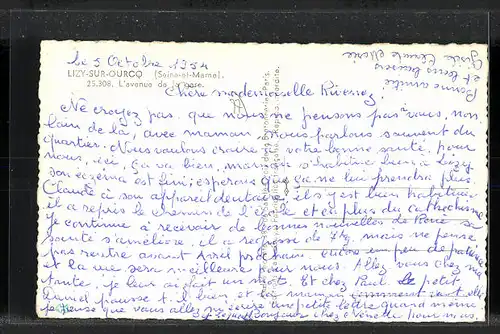 Le 5 Octobre 1954
LIZY-SUR-OURCQ (Seine-et-Marne).
25.308. L'avenue de la gare.
Chère mademoiselle
Ne croyez pas que nous ne pensons pas à vous, non
loin de là, avec maman nous parlons souvent du
quartier. Nous voulons croire à votre bonne santé, pour
nous, ici, ça va bien, maman s'habitue bien à Lizy
son eczéma est fini; espérons que ça ne lui prendra plus.
Claude à son appareil dentaire, il s'y est bien habitué.
il a repris le chemin de l'école et en plus du catéchisme
Je continue à recevoir de bonnes nouvelles de René sa
santé s'améliore, il a repris mais ne pense
pas rentrer avant Avril prochain, encore un peu de patience
et la vie sera meilleure pour nous. Allez vous chez ma
tante, je leur ai écrit un mot. Et chez Paul le petit
Daniel pousse t-il bien et la maman comment va t-elle
je pense que vous allez m'écrire une petite lettre quand même
Bonjour chez
Bonne amitié
et bons baisers
Claude